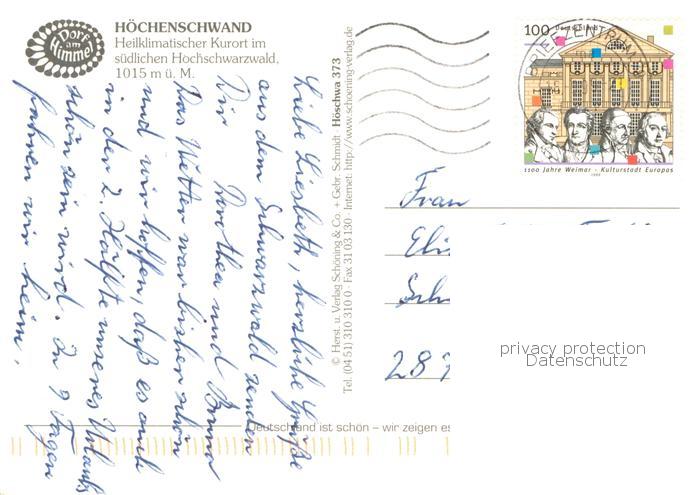 Dorf
am
Himmel
HÖCHENSCHWAND
Heilklimatischer Kurort im
südlichen Hochschwarzwald,
1015 m ü. M.
Liebe Liesbeth, herzliche Grüße
aus dem Schwarzwald senden
Dir Dorothea und Bruno
Das Wetter war bisher schön
und wir hoffen, daß es auch
in den 2. Hälfte unseres Urlaubs
schön sein wird. In 9 Tagen
fahren wir heim.
© Herst. u. Verlag Schöning & Co. + Gebr. Schmidt · Höschwa 373
Tel. (04 51) 310 310 0 · Fax 31 03 130 · Internet: http://www.schoening-verlag.de
Deutschland ist schön – wir zeigen es
100 Deutschland
BRIEFZENTRUM
1100 Jahre Weimar - Kulturstadt Europas
1999
Frau
Eli
Sch
28
privacy protection
Datenschutz